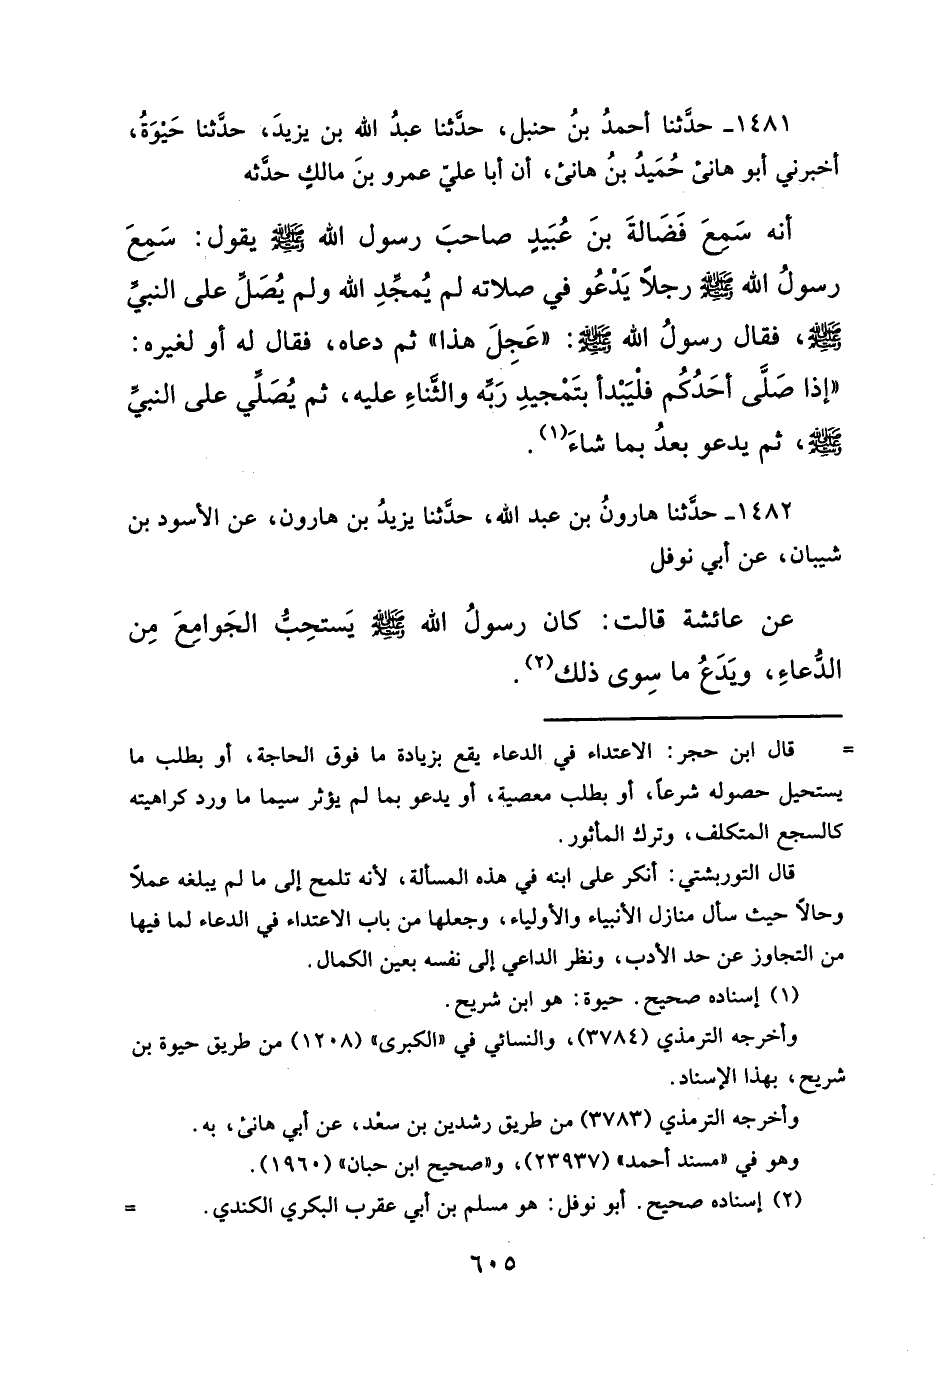 ١٤٨١ـ حدَّثنا أحمدُ بنُ حنبل، حدَّثنا عبدُ الله بن يزيدَ، حدَّثنا حَيْوَةُ،
أخبرني أبو هانئ حُمَيدُ بنُ هانئ، أن أبا عليّ عمرو بنَ مالكٍ حدَّثه
أنه سَمِعَ فَضَالةَ بنَ عُبَيدٍ صاحبَ رسول الله ﷺ يقول: سَمِعَ
رسولُ الله ﷺ رجلاً يَدْعُو في صلاته لم يُمجِّدِ الله ولم يُصَلِّ على النبيِّ
ﷺ، فقال رسولُ الله ﷺ: «عَجِلَ هذا» ثم دعاه، فقال له أو لغيره:
«إذا صَلَّى أحَدُكُم فلْيَبْدأ بتَمْجيدِ رَبِّه والثَّناءِ عليه، ثم يُصَلِّي على النبيِّ
ﷺ، ثم يدعو بعدُ بما شاءَ(١).
١٤٨٢ـ حدَّثنا هارونُ بن عبد الله، حدَّثنا يزيدُ بن هارون، عن الأسود بن
شيبان، عن أبي نوفل
عن عائشة قالت: كان رسولُ الله ﷺ يَستحِبُّ الجَوامِعَ مِن
الدُّعاءِ، ويَدَعُ ما سِوى ذلك(٢).
= قال ابن حجر: الاعتداء في الدعاء يقع بزيادة ما فوق الحاجة، أو بطلب ما
يستحيل حصوله شرعاً، أو بطلب معصية، أو يدعو بما لم يؤثر سيما ما ورد كراهيته
كالسجع المتكلف، وترك المأثور.
قال التوربشتي: أنكر على ابنه في هذه المسألة، لأنه تلمح إلى ما لم يبلغه عملاً
وحالاً حيث سأل منازل الأنبياء والأولياء، وجعلها من باب الاعتداء في الدعاء لما فيها
من التجاوز عن حد الأدب، ونظر الداعي إلى نفسه بعين الكمال.
(١) إسناده صحيح. حيوة: هو ابن شريح.
وأخرجه الترمذي (٣٧٨٤)، والنسائي في «الكبرى» (١٢٠٨) من طريق حيوة بن
شريح، بهذا الإسناد.
وأخرجه الترمذي (٣٧٨٣) من طريق رشدين بن سعْد، عن أبي هانئ، به.
وهو في «مسند أحمد» (٢٣٩٣٧)، و«صحيح ابن حبان» (١٩٦٠).
(٢) إسناده صحيح. أبو نوفل: هو مسلم بن أبي عقرب البكري الكندي. =
٦٠٥